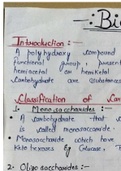 -: Bi
Introduction :-
A poly hydroxy compound
functional group, present
hemiacetal or hemiketal
Carbohydrate are
Classification of Car
1. Monosaccharides :-
A carbohydrate that
is called monosaccharide.
Monosaccharide which have
Keto hexoses Eg Glucose,
2. Oligosaccharides :-